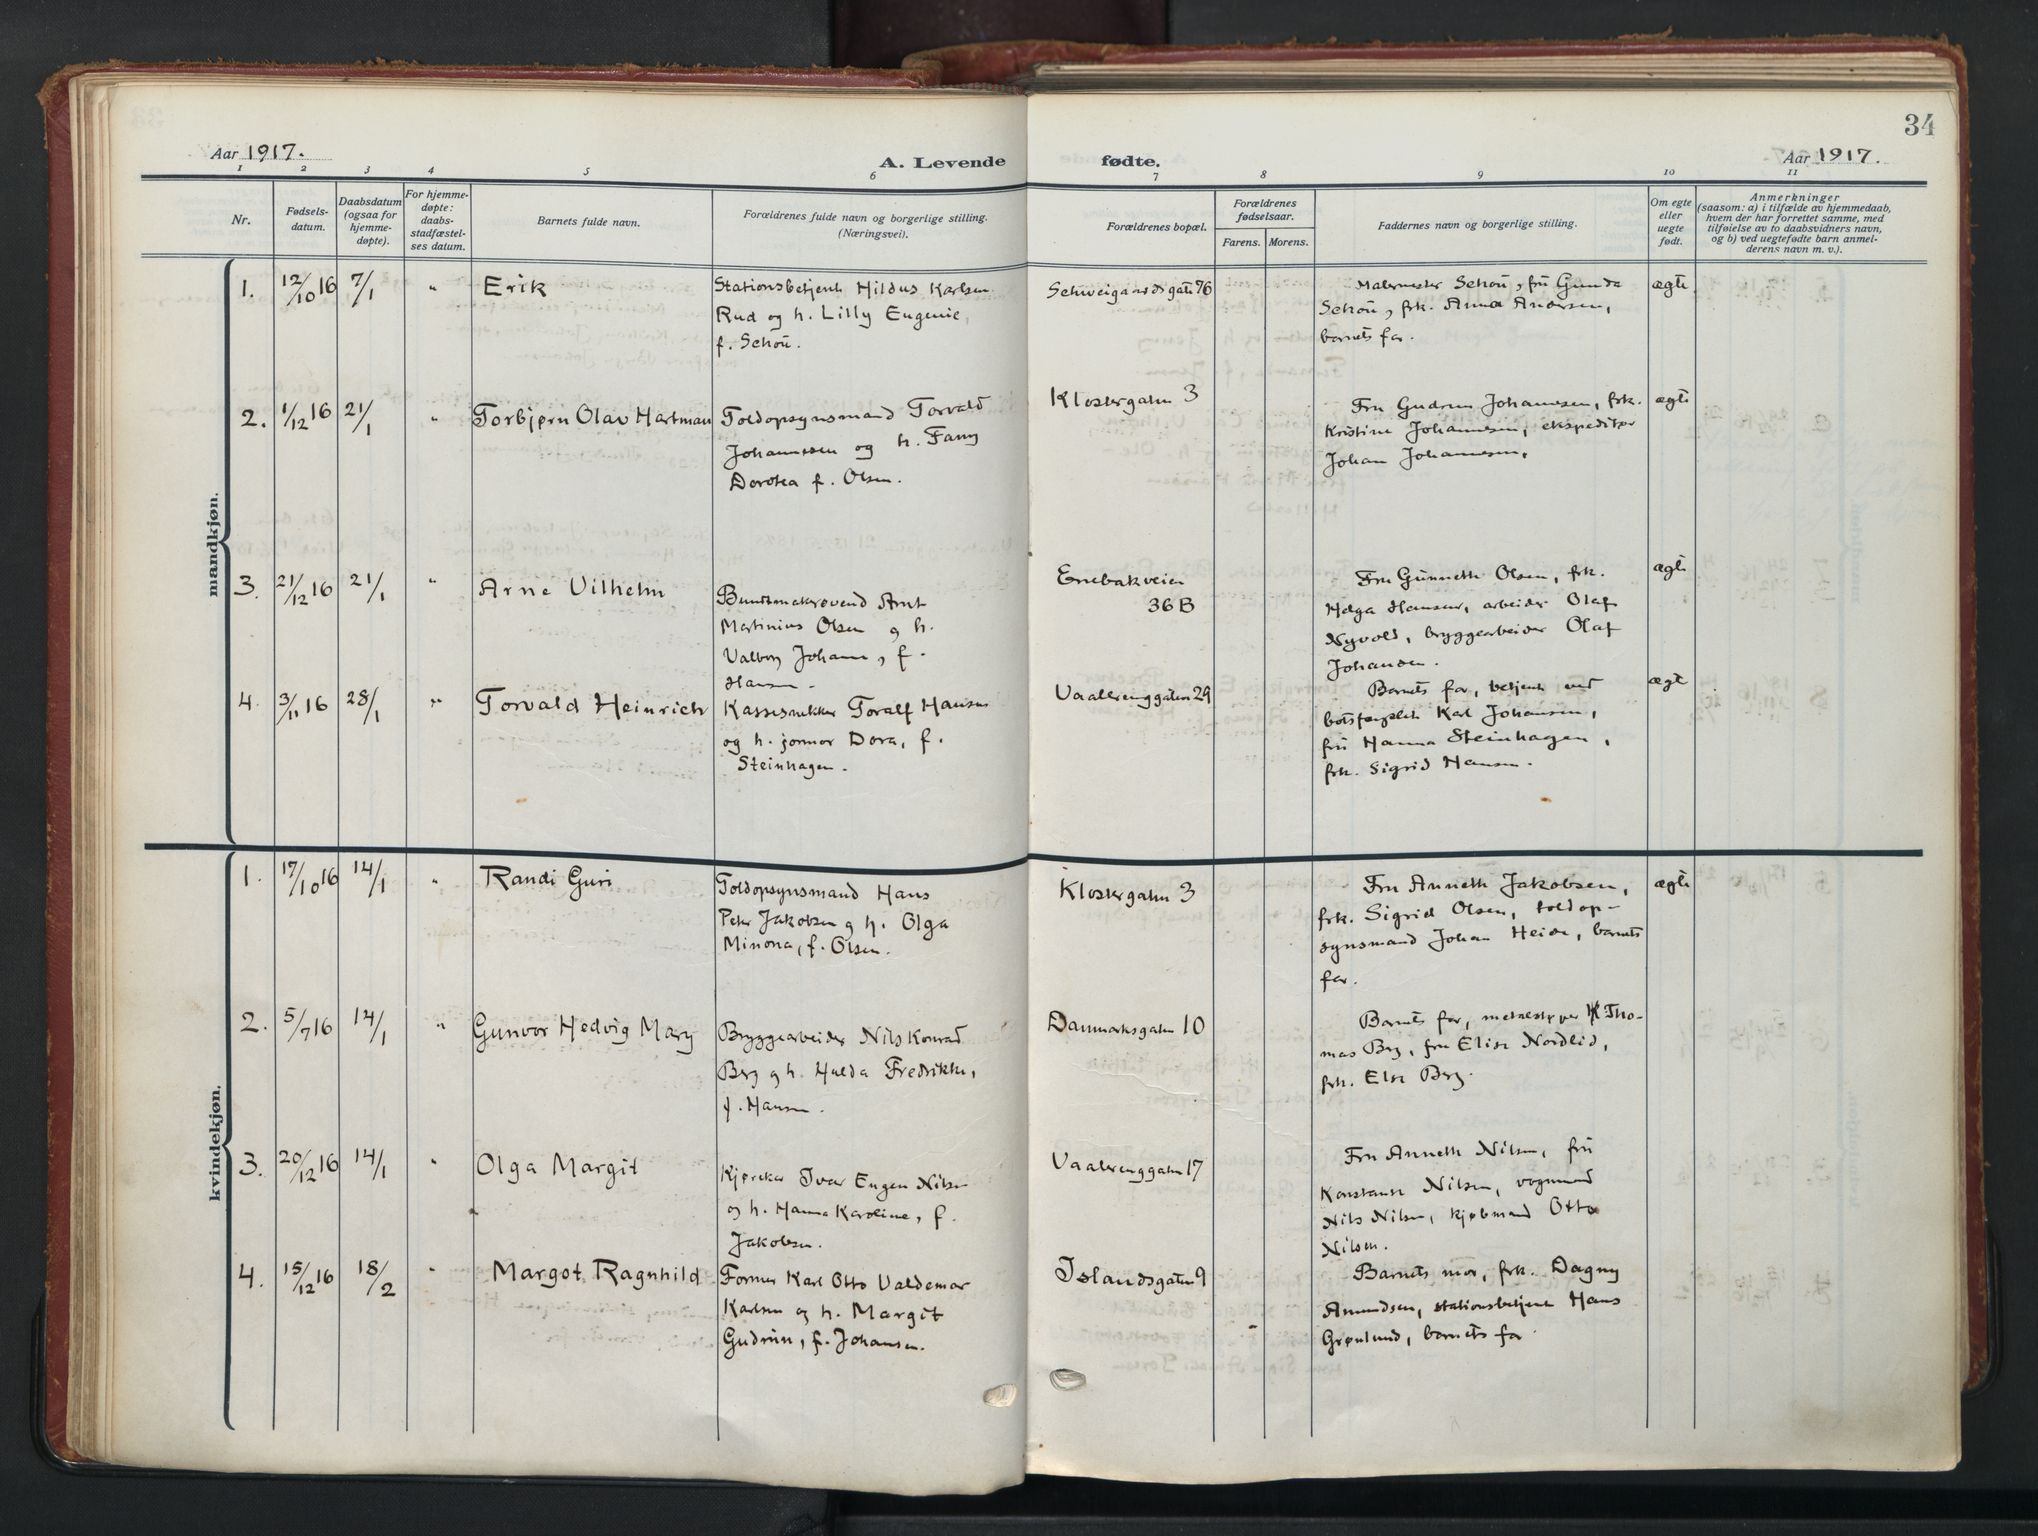 34
Aar 1917.
A. Levende fødte.
Aar 1917.
1 2 3 4 5 6 7 8 9 10 11
Nr.
Fødsels-
datum.
Daabsdatum
(ogsaa for
hjemme-
døpte).
For hjemme-
døpte:
daabs-
stadfæstel-
ses datum.
Barnets fulde navn.
Forældrenes fulde navn og borgerlige stilling.
(Næringsvei).
Forældrenes bopæl.
Forældrenes
fødselsaar.
Farens. Morens.
Faddernes navn og borgerlige stilling.
Om egte
eller
uegte
født.
Anmerkninger
(saasom: a) i tilfælde av hjemmedaab,
hvem der har forrettet samme, med
tilføielse av to daabsvidners navn,
og b) ved uegtefødte barn anmel-
derens navn m. v.).
mandkjøn.
1. 12/10 16 7/1 " Erik
Stationsbetjent Hildus Karlsen
Rud og h. Lilly Eugenie,
f. Schou.
Schweigaardsgate 76
Malermester Schou, fru Gunda
Schou, frk. Anna Andersen,
barnets far.
ægte
2. 1/12 16 21/1 " Torbjørn Olav Hartman
Toldopsynsmand Torvald
Johannesen og h. Fanny
Dorothea f. Olsen.
Klostergaten 3
Fru Gudrun Johannesen, frk.
Kristine Johannesen, ekspeditør
Johan Johannesen.
ægte
3. 21/12 16 21/1 " Arne Vilhelm
Buntmakersvend Arnt
Martinius Olsen og h.
Valborg Johanne, f.
Hansen.
Enebakveien
36 B
Fru Gunneth Olsen, frk.
Helga Hansen, arbeider Olaf
Nyvold, bryggearbeider Olaf
Johansen.
ægte
4. 3/11 16 28/1 " Torvald Heinrich
Kassesnekker Toralf Hansen
og h. jormor Dora, f.
Steinhagen.
Vaalerenggaten 29
Barnets far, betjent ved
botsfængslet Karl Johansen,
fru Hanna Steinhagen,
frk. Sigrid Hansen.
ægte
kvindekjøn.
1. 17/10 16 14/1 " Randi Guri
Toldopsynsmand Hans
Peter Jakobsen og h. Olga
Minona, f. Olsen.
Klostergaten 3
Fru Anneth Jakobsen,
frk. Sigrid Olsen, toldop-
synsmand Johan Heide, barnets
far.
ægte
2. 5/7 16 14/1 " Gunvor Hedvig Mary
Bryggearbeider Nils Konrad
Berg og h. Hulda Fredrikke,
f. Hansen.
Danmarksgaten 10
Barnets far, metalstøper K Tho-
mas Berg, fru Elise Nordlid,
frk. Else Berg.
3. 20/12 16 14/1 " Olga Margit
Kjøreker Ivar Eugen Nilsen
og h. Hanna Karoline, f.
Jakobsen.
Vaalerenggaten 17
Fru Anneth Nilsen, fru
Konstanse Nilsen, vognmand
Nils Nilsen, kjøbmand Otto
Nilsen.
4. 15/12 16 18/2 " Margot Ragnhild
Former Karl Otto Valdemar
Karlsen og h. Margit
Gudrun, f. Johansen.
Islandsgaten 9
Barnets mor, frk. Dagny
Amundsen, stationsbetjent Hans
Grønlund, barnets far